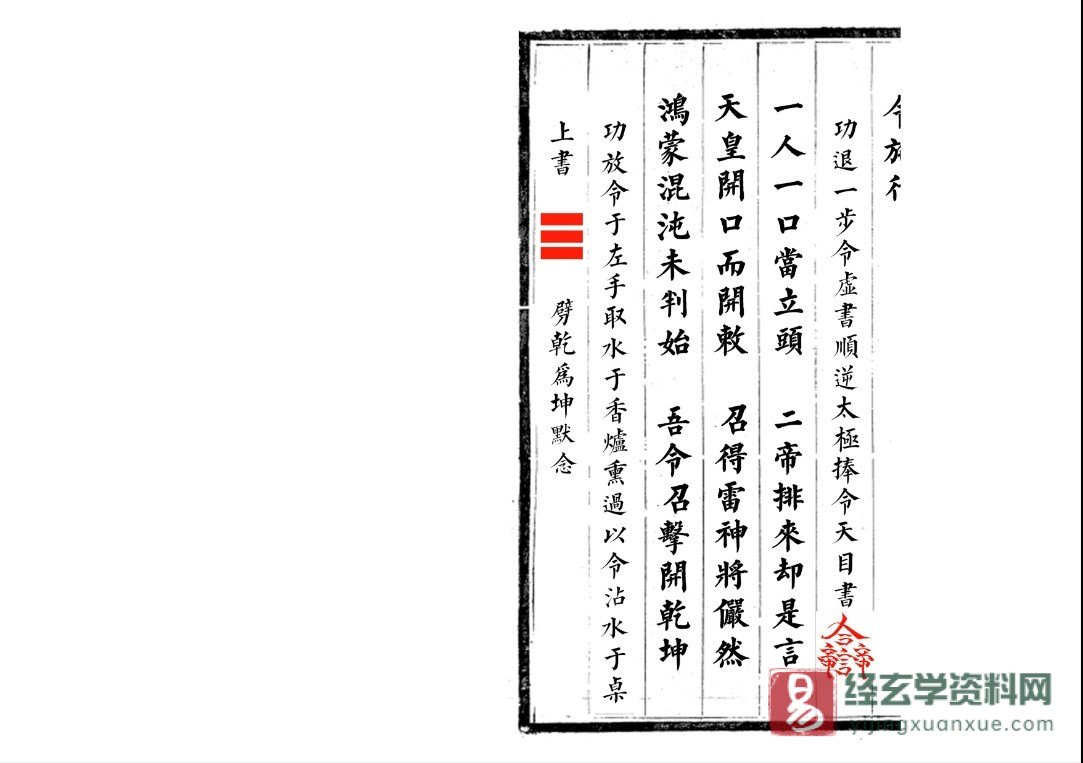 令放行
功退一步令虛書順逆太極捧令天目書
一人一口當立頭 二帝排來却是言
天皇開口而開敕 召得雷神將儼然
鴻蒙混沌未判始 吾令召擊開乾坤
功放令于左手取水于香爐熏過以令沾水于桌
上書 ☰ 劈乾爲坤默念
易
经玄学资料网
yijingxuanxue.com